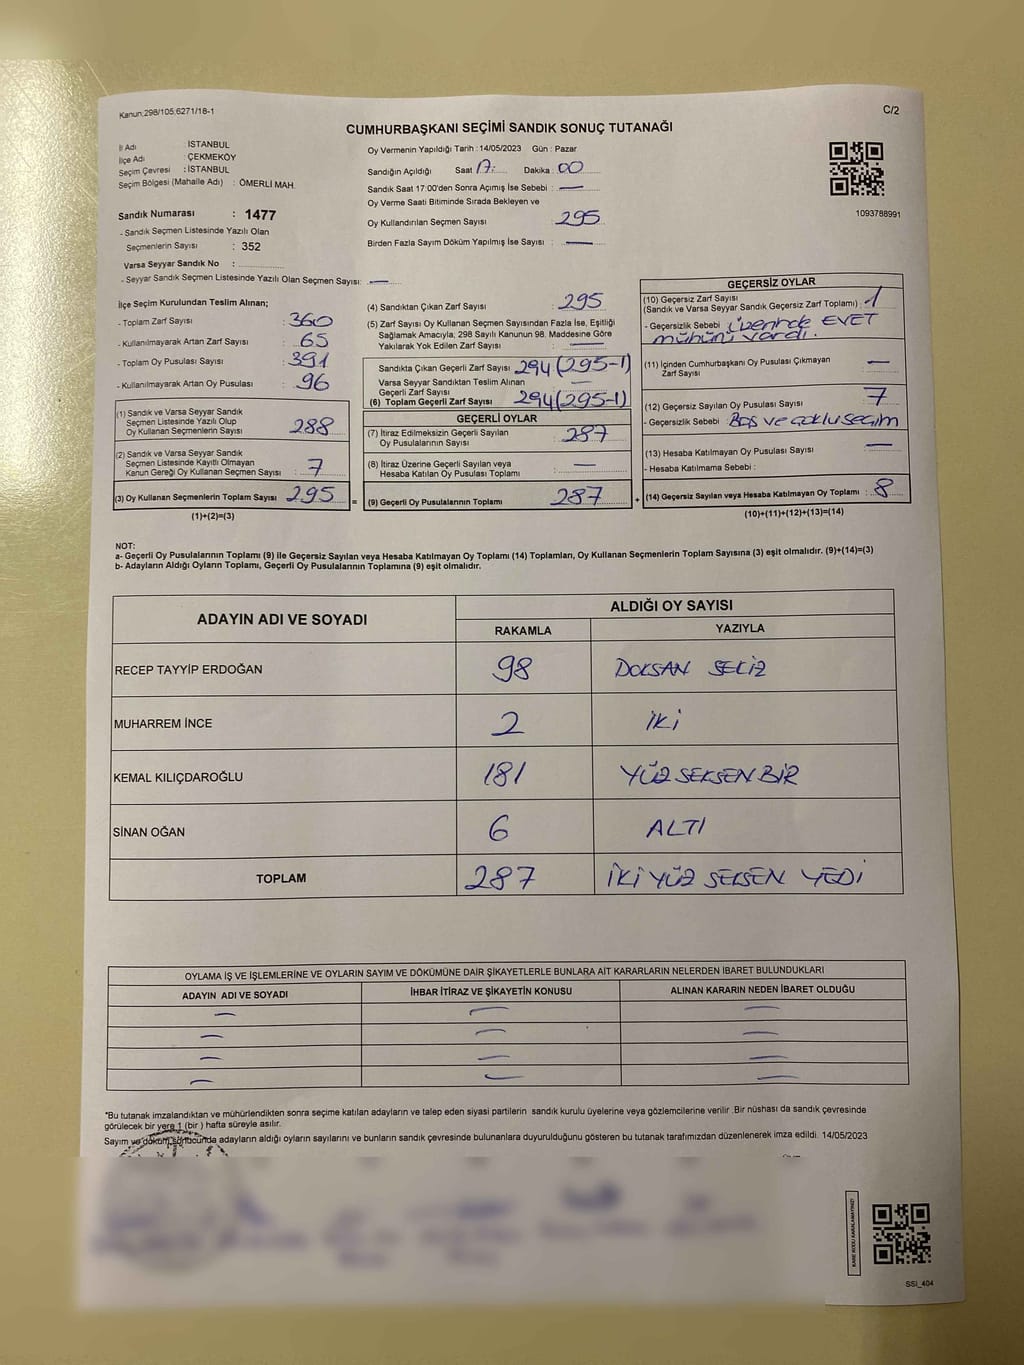 Kanun:298/105;6271/18-1
C/2
CUMHURBAŞKANI SEÇİMİ SANDIK SONUÇ TUTANAĞI
İl Adı : İSTANBUL
İlçe Adı : ÇEKMEKÖY
Seçim Çevresi : İSTANBUL
Seçim Bölgesi (Mahalle Adı) : ÖMERLİ MAH.
Sandık Numarası : 1477
- Sandık Seçmen Listesinde Yazılı Olan
Seçmenlerin Sayısı : 352
Varsa Seyyar Sandık No :
- Seyyar Sandık Seçmen Listesinde Yazılı Olan Seçmen Sayısı: —
Oy Vermenin Yapıldığı Tarih : 14/05/2023 Gün : Pazar
Sandığın Açıldığı Saat 17: Dakika : 00
Sandık Saat 17:00'den Sonra Açımış İse Sebebi : —
Oy Verme Saati Bitiminde Sırada Bekleyen ve
Oy Kullandırılan Seçmen Sayısı : 295
Birden Fazla Sayım Döküm Yapılmış İse Sayısı : —
1093788991
İlçe Seçim Kurulundan Teslim Alınan;
- Toplam Zarf Sayısı : 360
- Kullanılmayarak Artan Zarf Sayısı : 65
- Toplam Oy Pusulası Sayısı : 391
- Kullanılmayarak Artan Oy Pusulası : 96
(1) Sandık ve Varsa Seyyar Sandık
Seçmen Listesinde Yazılı Olup
Oy Kullanan Seçmenlerin Sayısı : 288
(2) Sandık ve Varsa Seyyar Sandık
Seçmen Listesinde Kayıtlı Olmayan
Kanun Gereği Oy Kullanan Seçmen Sayısı : 7
(3) Oy Kullanan Seçmenlerin Toplam Sayısı : 295 =
(1)+(2)=(3)
(4) Sandıktan Çıkan Zarf Sayısı : 295
(5) Zarf Sayısı Oy Kullanan Seçmen Sayısından Fazla İse, Eşitliği
Sağlamak Amacıyla, 298 Sayılı Kanunun 98. Maddesine Göre
Yakılarak Yok Edilen Zarf Sayısı : —
Sandıkta Çıkan Geçerli Zarf Sayısı : 294 (295-1)
Varsa Seyyar Sandıktan Teslim Alınan
Geçerli Zarf Sayısı : —
(6) Toplam Geçerli Zarf Sayısı : 294 (295-1)
GEÇERLİ OYLAR
(7) İtiraz Edilmeksizin Geçerli Sayılan
Oy Pusulalarının Sayısı : 287
(8) İtiraz Üzerine Geçerli Sayılan veya
Hesaba Katılan Oy Pusulası Toplamı : —
(9) Geçerli Oy Pusulalarının Toplamı : 287 +
GEÇERSİZ OYLAR
(10) Geçersiz Zarf Sayısı
(Sandık ve Varsa Seyyar Sandık Geçersiz Zarf Toplamı) : 1
- Geçersizlik Sebebi : üzerinde EVET
mühürü vardı.
(11) İçinden Cumhurbaşkanı Oy Pusulası Çıkmayan
Zarf Sayısı : —
(12) Geçersiz Sayılan Oy Pusulası Sayısı : 7
- Geçersizlik Sebebi : BOŞ ve çoklu seçim
(13) Hesaba Katılmayan Oy Pusulası Sayısı : —
- Hesaba Katılmama Sebebi :
(14) Geçersiz Sayılan veya Hesaba Katılmayan Oy Toplamı : 8
(10)+(11)+(12)+(13)=(14)
NOT:
a- Geçerli Oy Pusulalarının Toplamı (9) ile Geçersiz Sayılan veya Hesaba Katılmayan Oy Toplamı (14) Toplamları, Oy Kullanan Seçmenlerin Toplam Sayısına (3) eşit olmalıdır. (9)+(14)=(3)
b- Adayların Aldığı Oyların Toplamı, Geçerli Oy Pusulalarının Toplamına (9) eşit olmalıdır.
ADAYIN ADI VE SOYADI ALDIĞI OY SAYISI
RAKAMLA YAZIYLA
RECEP TAYYİP ERDOĞAN 98 DOKSAN SEKİZ
MUHARREM İNCE 2 İKİ
KEMAL KILIÇDAROĞLU 181 YÜZ SEKSEN BİR
SİNAN OĞAN 6 ALTI
TOPLAM 287 İKİ YÜZ SEKSEN YEDİ
OYLAMA İŞ VE İŞLEMLERİNE VE OYLARIN SAYIM VE DÖKÜMÜNE DAİR ŞİKAYETLERLE BUNLARA AİT KARARLARIN NELERDEN İBARET BULUNDUKLARI
ADAYIN ADI VE SOYADI İHBAR İTİRAZ VE ŞİKAYETİN KONUSU ALINAN KARARIN NEDEN İBARET OLDUĞU
— — —
— — —
— — —
— — —
*Bu tutanak imzalandıktan ve mühürlendikten sonra seçime katılan adayların ve talep eden siyasi partilerin sandık kurulu üyelerine veya gözlemcilerine verilir .Bir nüshası da sandık çevresinde
görülecek bir yere 1 (bir ) hafta süreyle asılır.
Sayım ve döküm sonucunda adayların aldığı oyların sayılarını ve bunların sandık çevresinde bulunanlara duyurulduğunu gösteren bu tutanak tarafımızdan düzenlenerek imza edildi. 14/05/2023
KARE KODU KARALAMAYINIZ!
SSI_404